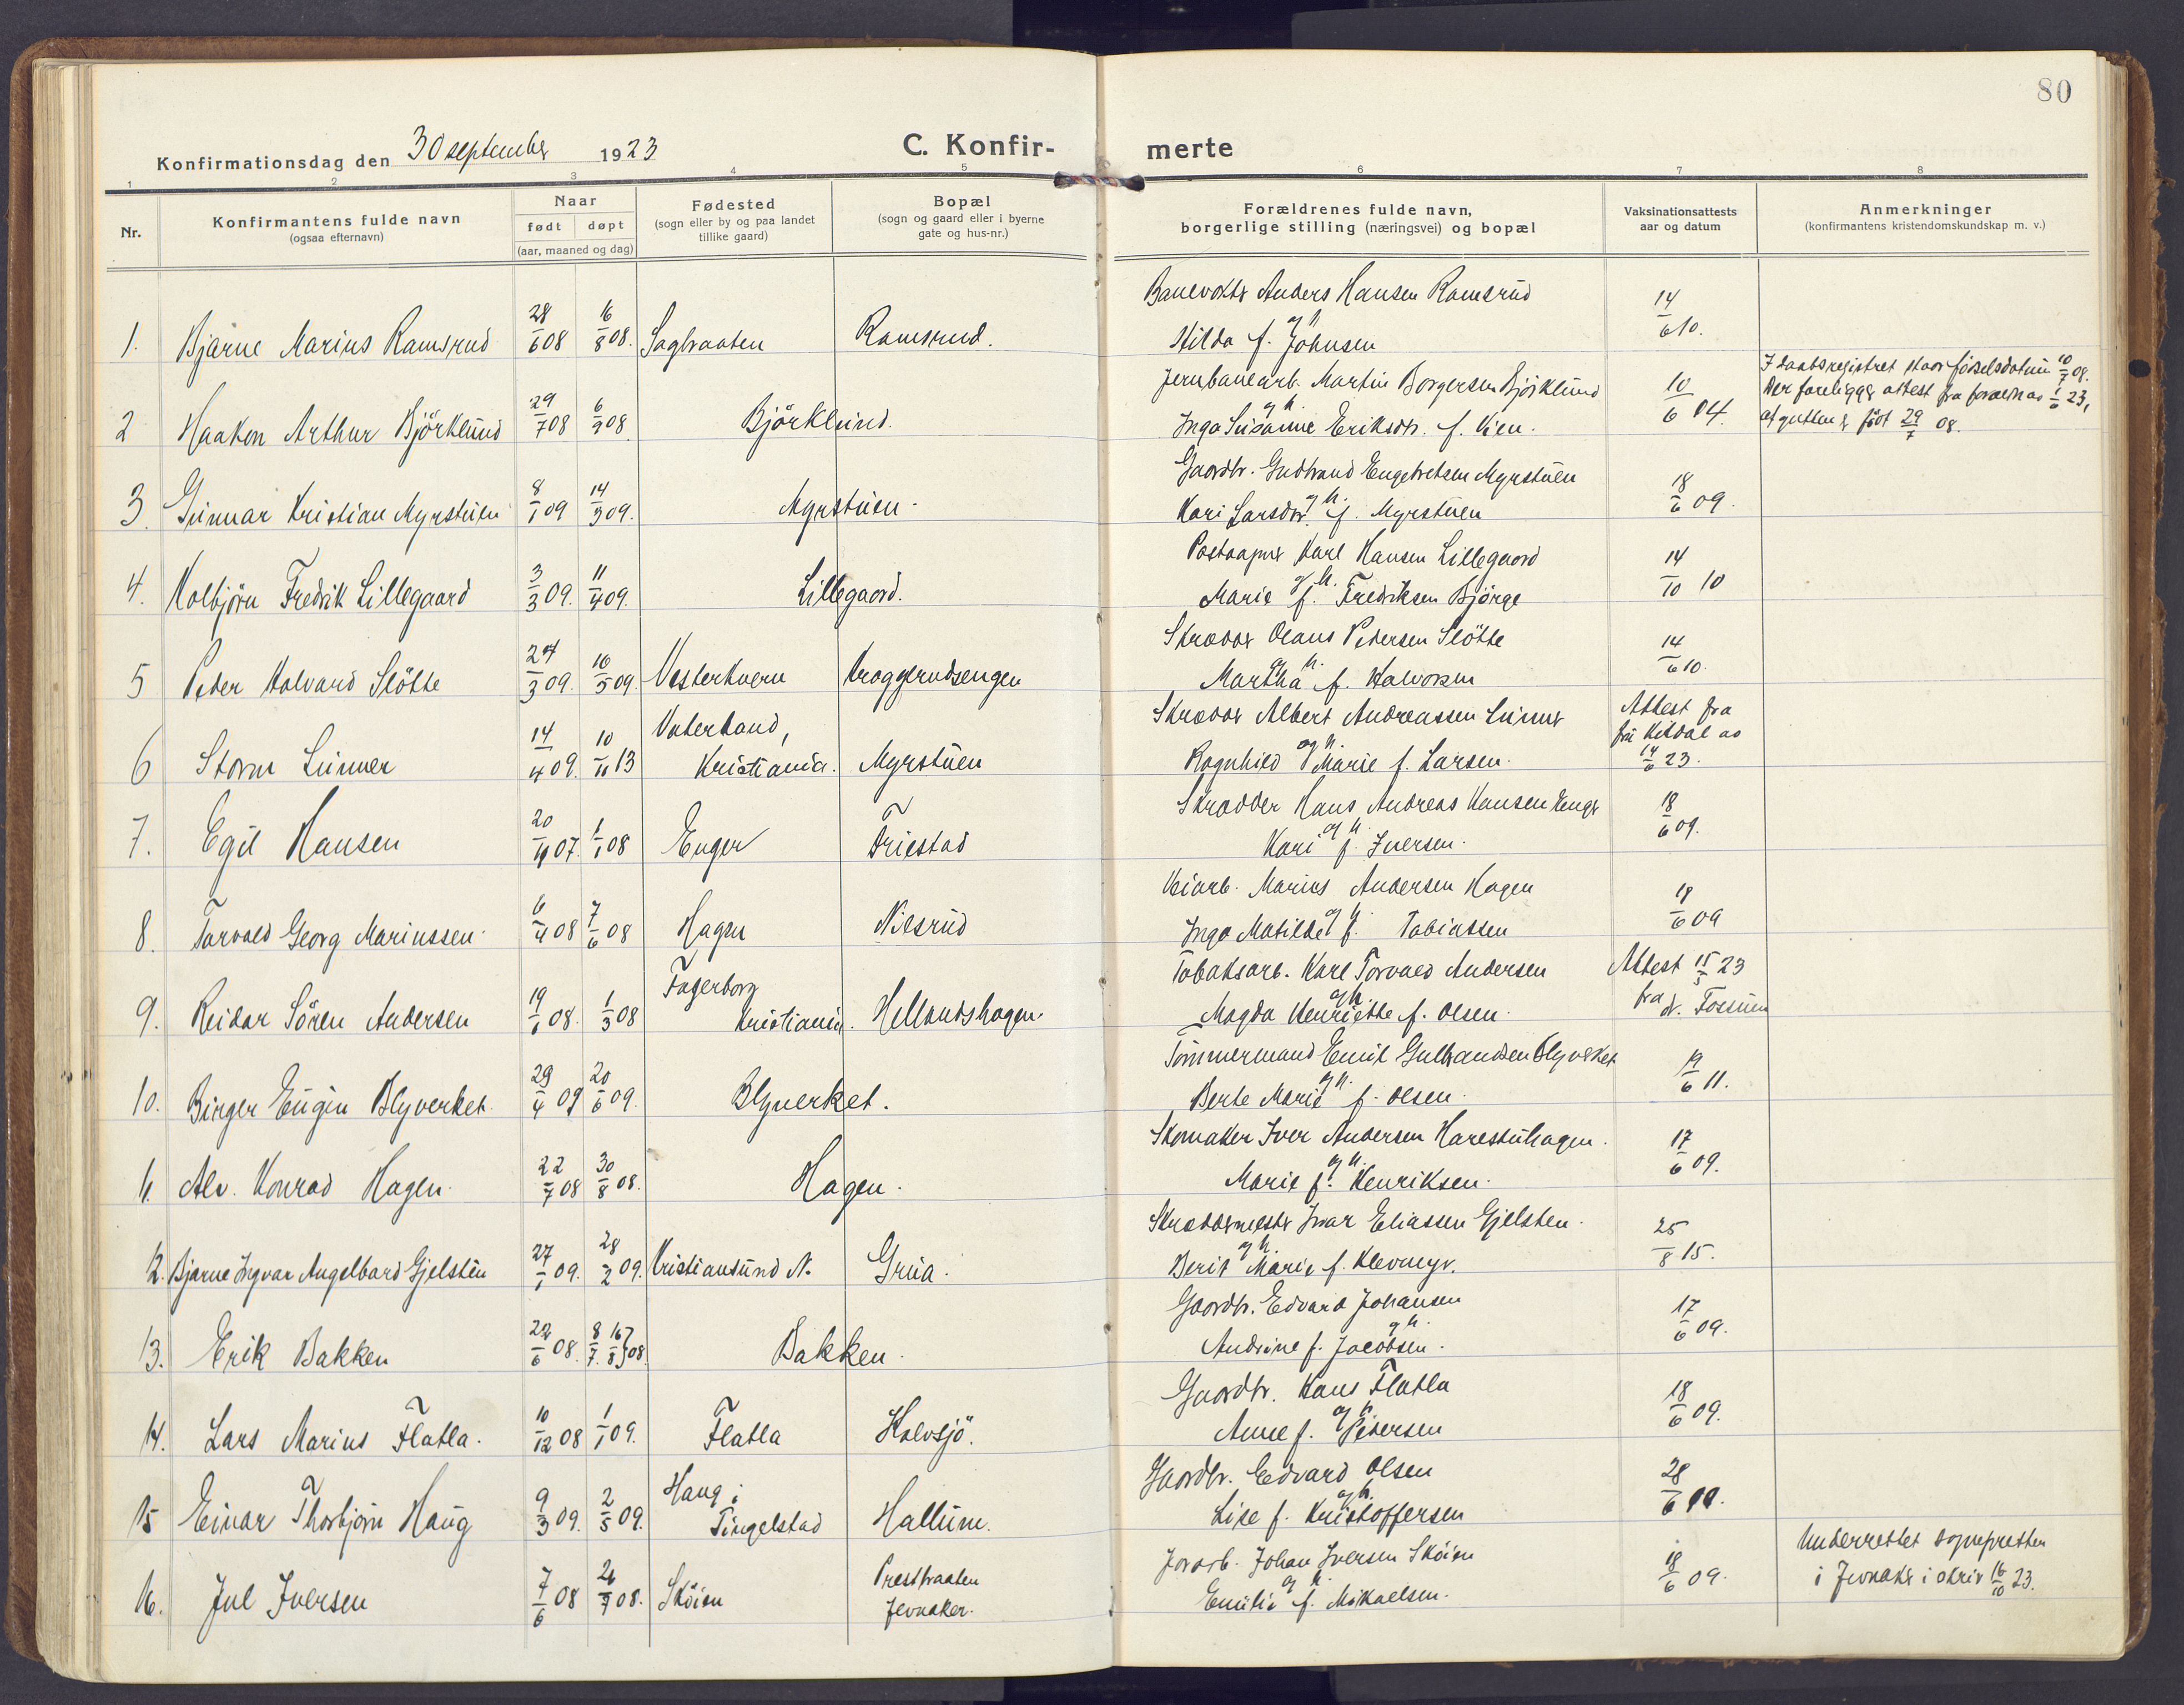 80
Konfirmationsdag den 30 september 1923
C. Konfir- merte
1 2 3 4 5 6 7 8
Nr.
Konfirmantens fulde navn
(ogsaa efternavn)
Naar
født døpt
(aar, maaned og dag)
Fødested
(sogn eller by og paa landet
tillike gaard)
Bopæl
(sogn og gaard eller i byerne
gate og hus-nr.)
Forældrenes fulde navn,
borgerlige stilling (næringsvei) og bopæl
Vaksinationsattests
aar og datum
Anmerkninger
(konfirmantens kristendomskundskap m. v.)
1. Bjarne Marius Ramsrud 28/6 08 16/8 08. Sagbraaten Ramsrud.
Banevokter Anders Hansen Ramsrud
og h.
Hilda f. Johnsen
14/6 10.
2 Haakon Arthur Björklund 29/7 08 6/9 08 Björklund.
Jernbanearb. Martin Borgersen Björklund
og h.
Inga Susanne Eriksdtr. f. Vien.
10/6 04.
I daabsregistret staar födselsdatum 10/7 08.
Der foreligger attest fra foræld. av 1/6 23,
at gutten er födt 29/7 08.
3. Gunnar Kristian Myrstuen 8/1 09 14/3 09. Myrstuen.
Gaardbr. Gudbrand Engebretsen Myrstuen
og h.
Kari Larsdtr. f. Myrstuen
18/6 09.
4. Kolbjörn Fredrik Lillegaard 3/3 09. 11/4 09. Lillegaard.
Postaapner Karl Hansen Lillegaard
og h.
Marie f. Fredriksen Björge
14/10 10
5 Peder Halvard Slötte 24/3 09. 16/5 09. Vesterhvern Kroggerudsengen
Skrædder Olaus Pedersen Slötte
og h.
Martha f. Halvorsen
14/6 10.
6 Storm Lunner 14/4 09. 10/11 13 Vaterland,
Kristiania. Myrstuen
Skrædder Albert Andreassen Lunner
og h.
Ragnhild Marie f. Larsen.
Attest fra
frk Kildal av
14/6 23.
7. Egil Hansen 20/11 07. 1/1 08 Enger Friestad
Skrædder Hans Andreas Hansen Enger
og h.
Kari f. Iversen.
18/6 09.
8. Torvald Georg Mariussen 6/4 08 7/6 08 Hagen Nilsrud
Veiarb. Marius Andersen Hagen
og h.
Inga Matilde f. Tobiassen
18/6 09
9. Reidar Sören Andersen 19/1 08. 1/3 08 Fagerborg
Kristiania. Hellandshagen.
Tobaksarb. Karl Torvald Andersen
og h.
Magda Henriette f. Olsen.
Attest 15/5 23
fra dr. Fossum
10. Birger Eugin Blyverket 29/4 09 20/6 09. Blyverket.
Tömmermand Emil Gulbrandsen Blyverket
og h.
Berte Marie f. Olsen.
19/6 11.
11. Alv. Konrad Hagen. 22/7 08 30/8 08. Hagen.
Skomaker Iver Andersen Harestuhagen.
og h.
Marie f. Henriksen.
17/6 09.
12. Bjarne Ingvar Angelbard Gjelsten 27/1 09. 28/2 09. Kristiansund N. Grua.
Skræddermester Ivar Eliassen Gjelsten.
og h.
Berit Marie f. Klevmyr.
25/8 15.
13. Erik Bakken 22/6 08. 8/7. 16/8 } 08. Bakken.
Gaardbr. Edvard Johansen
og h.
Andrine f. Jacobsen.
17/6 09.
14. Lars Marius Flatla. 10/12 08 1/1 09. Flatla Kalvsjö.
Gaardbr. Hans Flatla
og h.
Anne f. Pedersen
18/6 09.
15 Einar Thorbjörn Haug 9/3 09. 2/5 09. Haug i
Tingelstad Hallum.
Gaardbr. Edvard Olsen
og h.
Lise f. Kristoffersen
28/6
16. Jul Iversen 7/6 08 26/7 08. Sköien Prestbraaten
Jevnaker.
Jordarb. Johan Iversen Sköien
og h.
Emilie f. Mikaelsen.
18/6 09.
Underrettet sognepresten
i Jevnaker i skriv 16/10 23.